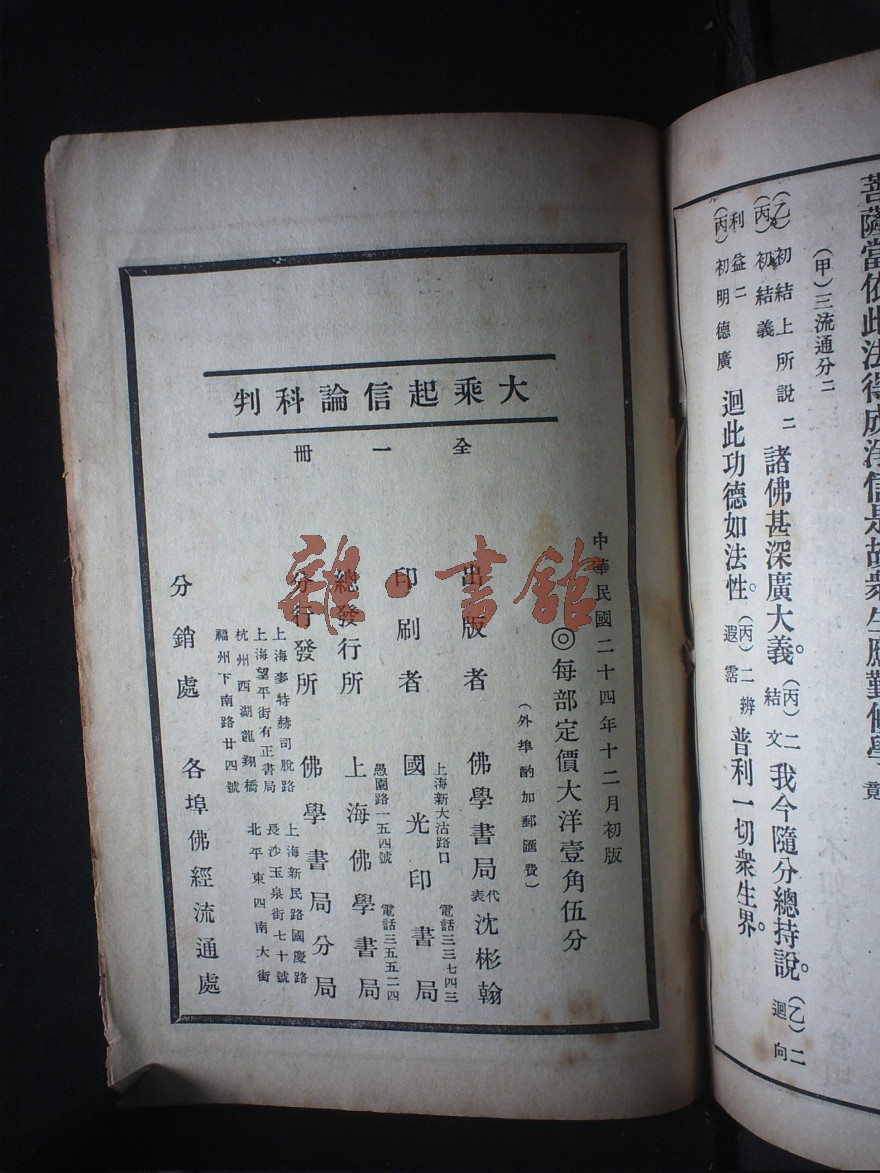 菩薩當依此法得成淨信是故衆生應勤修學竟
(甲)三流通分二
(乙)初結上所說二
(丙)初結義
諸佛甚深廣大義。
(丙)二結文
我今隨分總持說。
(乙)二迴向
利益二
(丙)初明德廣
迴此功德如法性。
(丙)二辨遐霑
普利一切衆生界。
大乘起信論科判
全一冊
中華民國二十四年十二月初版
◎每部定價大洋壹角伍分
(外埠酌加郵匯費)
出版者 佛學書局代表沈彬翰
上海新大沽路口
電話三三七四三
印刷者 國光印書局
愚園路一五四號
電話三五五二四
總發行所 上海佛學書局
分行發所 佛學書局分局
上海麥特赫司脫路
上海新民路國慶路
上海望平街有正書局
長沙玉泉街七十號
杭州西湖龍翔橋
北平東四南大街
福州下南路廿四號
分銷處 各埠佛經流通處
雜·書館